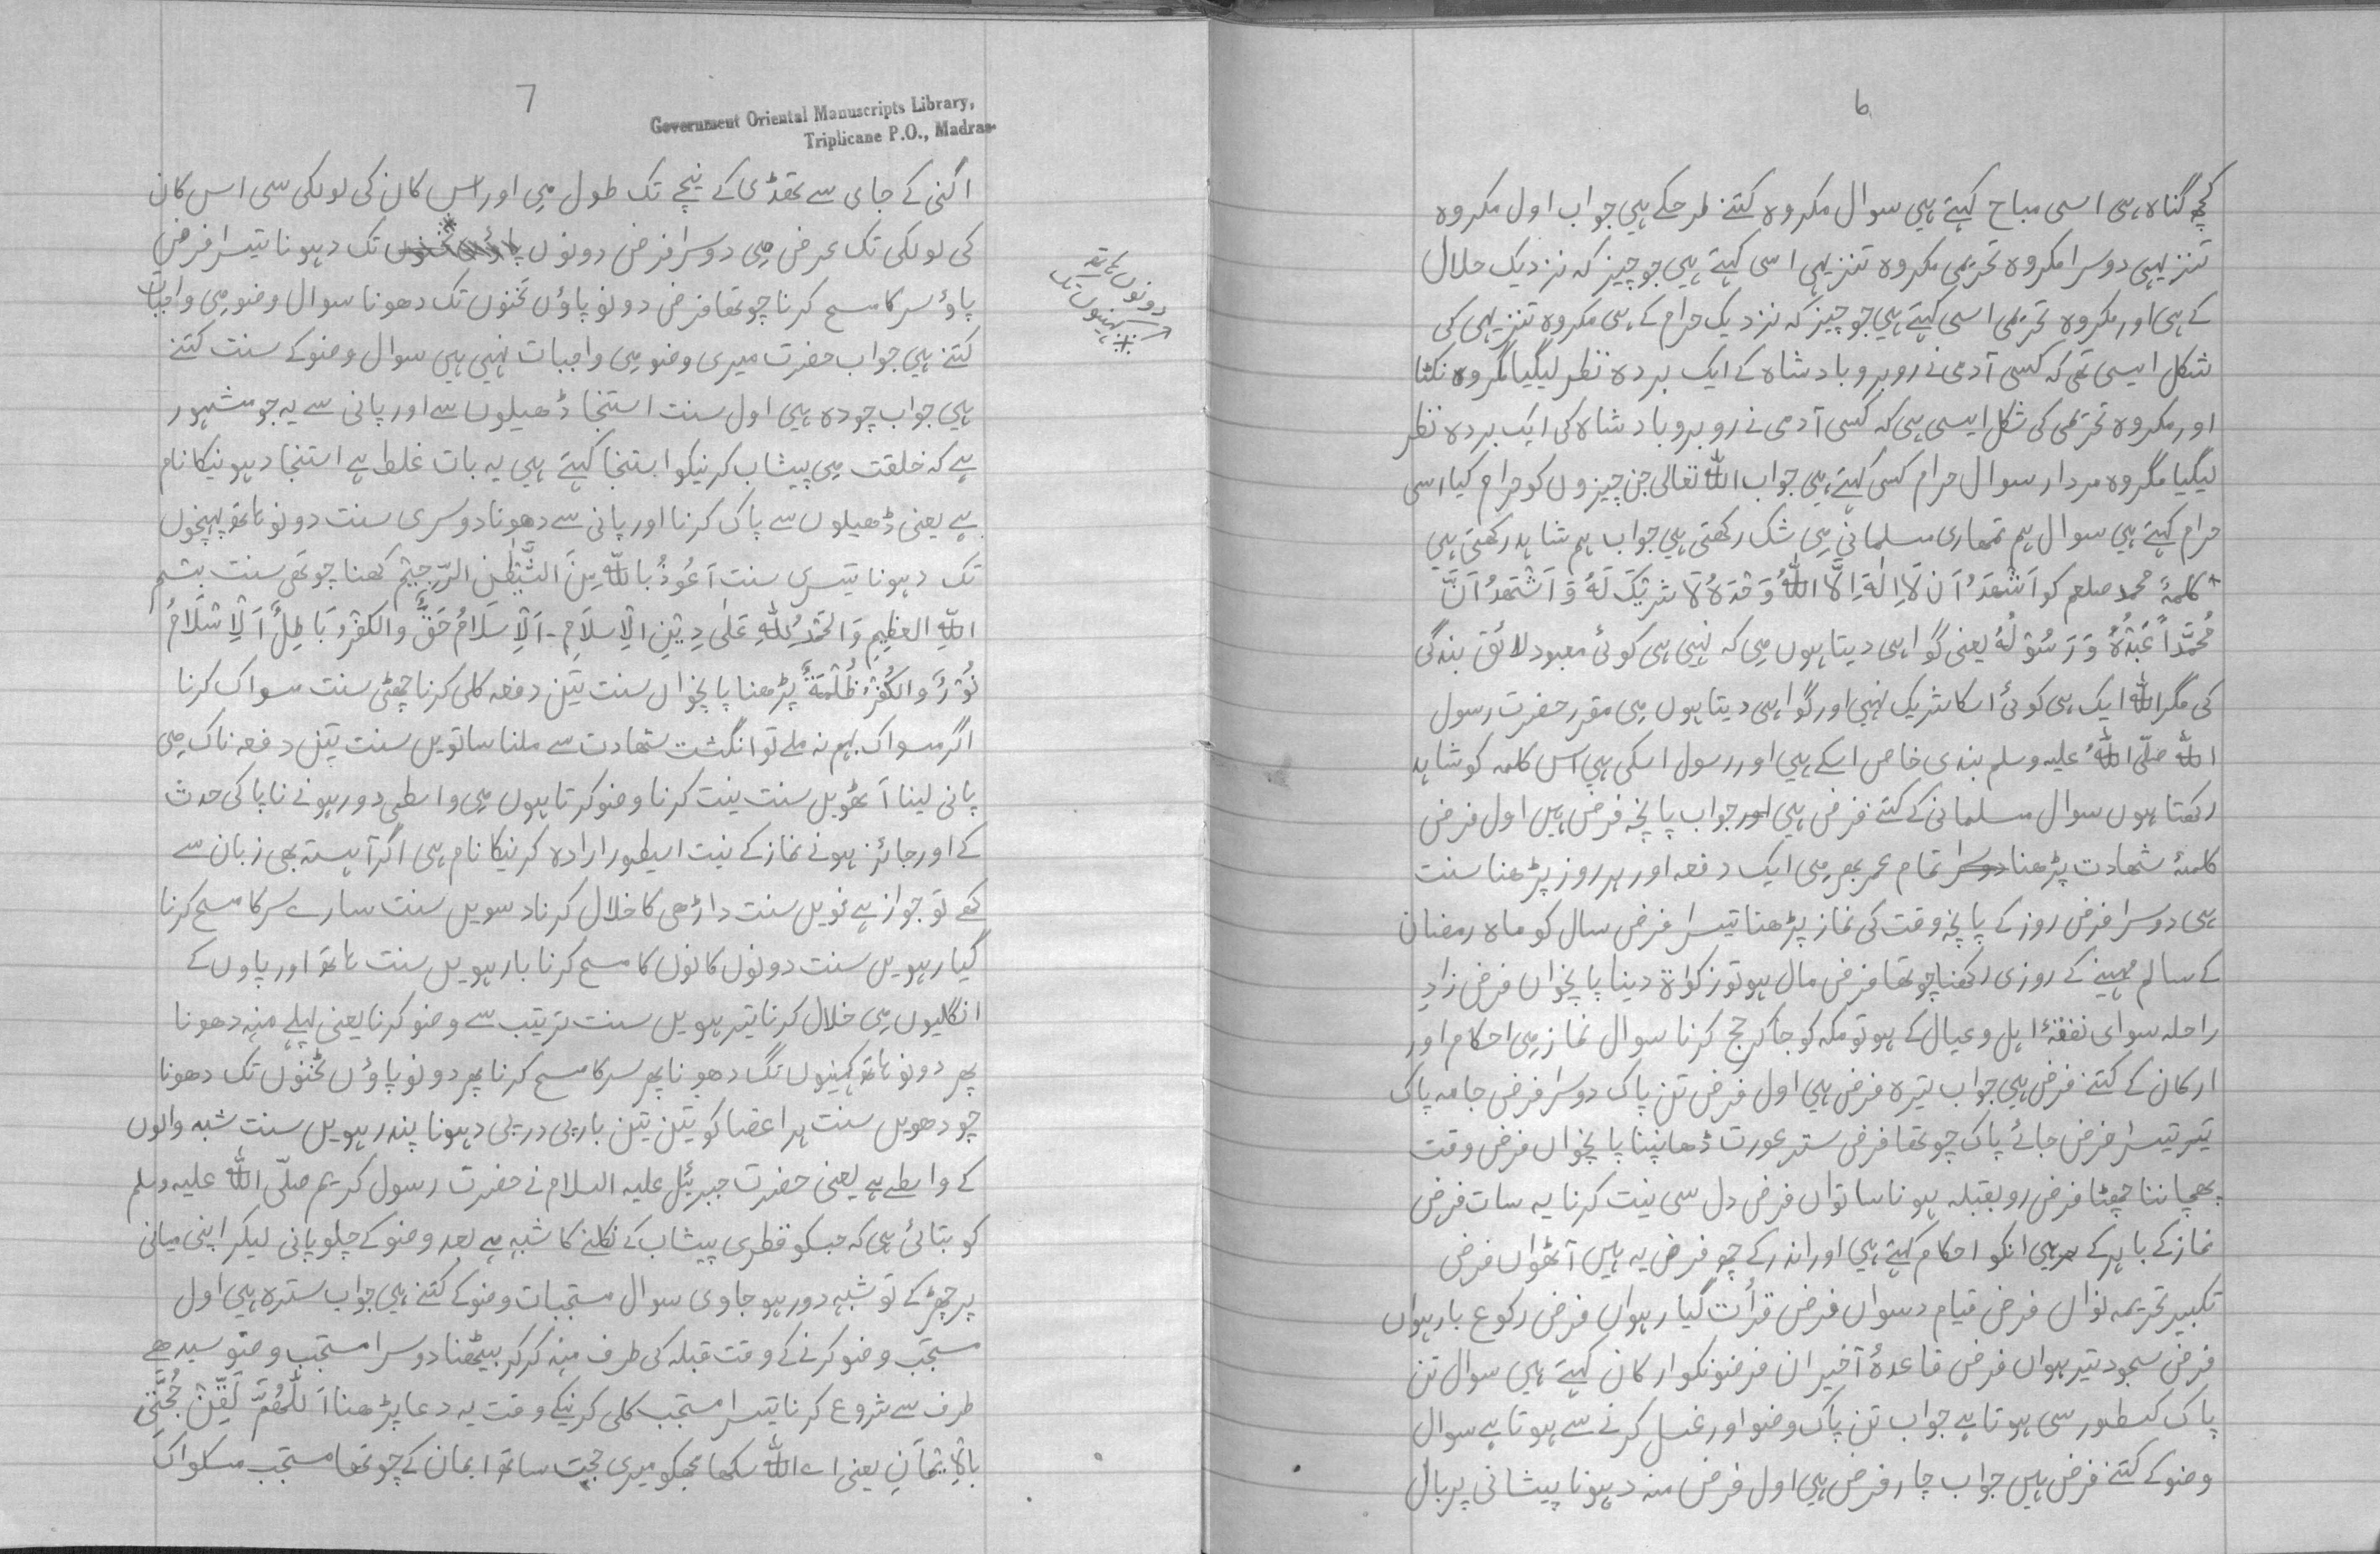 ٦
کچھ گناہ ہی اسی مباح کہتے ہیں سوال مکروہ کتنے طرحکے ہیں جواب اول مکروہ
تنزیہی دوسرا مکروہ تحریمی مکروہ تنزیہی اسی کہتے ہیں جو چیز کہ نزدیک حلال
کے ہی اور مکروہ تحریمی اسی کہتے ہیں جو چیز کہ نزدیک حرام کے ہی مکروہ تنزیہی کی
شکل ایسی تھی کہ کسی آدمی نے روبرو بادشاہ کے ایک بردہ نظر لیگیا مگر وہ نکٹا
اور مکروہ تحریمی کی شکل ایسی ہی کہ کسی آدمی نے روبرو بادشاہ کی ایک بردہ نظر
لیگیا مگر وہ مردار سوال حرام کسی کہتے ہیں جواب اللہ تعالی جن چیزوں کو حرام کیا اسی
حرام کہتے ہیں سوال ہم تمھاری مسلمانی میں شک رکھتی ہیں جواب ہم شاہد رکھتی ہیں
کلمۂ محمد صلعم کو اَشْهَدُ اَن لَّا اِلٰهَ اِلَّا اللهُ وَحْدَهُ لَا شَرِيْكَ لَهُ وَ اَشْهَدُ اَنَّ
مُحَمَّداً عَبْدُهُ وَ رَسُوْلُهُ یعنی گواہی دیتا ہوں میں کہ نہیں ہی کوئی معبود لائق بندگی
کی مگر اللہ ایک ہی کوئی اسکا شریک نہیں اور گواہی دیتا ہوں میں مقرر حضرت رسول
اللہ صلّی اللہُ علیہ وسلم بندی خاص اسکے ہیں اور رسول اسکی ہیں اس کلمہ کو شاہد
رکھتا ہوں سوال مسلمانی کے کتنے فرض ہیں اور جواب پانچہ فرض ہیں اول فرض
کلمۂ شھادت پڑھنا دوسرا تمام عمر بھر میں ایک دفعہ اور ہر روز پڑھنا سنت
ہی دوسرا فرض روز کے پانچہ وقت کی نماز پڑھنا تیسرا فرض سال کو ماہ رمضان
کے سالم مہینے کے روزی رکھنا چوتھا فرض مال ہو تو زکواۃ دینا پانچواں فرض زادِ
راحلہ سوای نفقۂ اہل و عیال کے ہو تو مکہ کو جاکر حج کرنا سوال نماز میں احکام اور
ارکان کے کتنے فرض ہیں جواب تیرہ فرض ہیں اول فرض تن پاک دوسرا فرض جامہ پاک
تیر تیسرا فرض جائے پاک چوتھا فرض ستر عورت ڈھانپنا پانچواں فرض وقت
پھچاننا چھٹا فرض رو بقبلہ ہونا ساتواں فرض دل سی نیت کرنا یہ سات فرض
نماز کے باہر کے ہیں انکو احکام کہتے ہیں اور اندر کے چہ فرض یہ ہیں آٹھواں فرض
تکبیر تحریمہ نواں فرض قیام دسواں فرض قرأت گیارہواں فرض رکوع بارہواں
فرض سجود تیرہواں فرض قاعدۂ آخیر ان فرضونکو ارکان کہتے ہیں سوال تن
پاک کسطور سی ہوتا ہے جواب تن پاک وضو اور غسل کرنے سے ہوتا ہے سوال
وضو کے کتنے فرض ہیں جواب چار فرض ہیں اول فرض منہ دہونا پیشانی پر بال
7
Government Oriental Manuscripts Library,
Triplicane P.O., Madras
اگنی کے جای سے تھڈی کے نیچے تک طول میں اور اس کان کی لولکی سی اس کان
کی لولکی تک عرض میں دوسرا فرض دونوں پاؤں ٹخنوں * تک دہونا تیسرا فرض
دونوں ہاتہ
* کہنیوں
پاؤ سر کا مسح کرنا چوتھا فرض دونو پاؤں ٹخنوں تک دھونا سوال وضو میں واجبات
کتنے ہیں جواب حضرت میری وضو میں واجبات نہیں ہیں سوال وضو کے سنت کتنے
ہیں جواب چودہ ہیں اول سنت استنجا ڈھیلوں سے اور پانی سے یہ جو مشہور
ہے کہ خلقت میں پیشاب کرنیکو استنجا کہتے ہیں یہ بات غلط ہے استنجا دہونیکا نام
ہے یعنی ڈھیلوں سے پاک کرنا اور پانی سے دھونا دوسری سنت دونو ہاتھ پہنچوں
تک دہونا تیسری سنت اَعُوْذُ بِاللهِ مِنَ الشَّيْطٰنِ الرَّجِيْمِ کھنا چوتھی سنت بِسْمِ
اللهِ العَظِيْمِ وَالحَمْدُ لِلّٰهِ عَلٰى دِيْنِ الْاِسْلَامِ - اَلْاِسْلَامُ حَقٌّ وَالكُفْرُ بَاطِلٌ اَلْاِسْلَامُ
نُوْرٌ وَالكُفْرُ ظُلْمَةٌ پڑھنا پانچواں سنت تین دفعہ کلی کرنا چھٹی سنت مسواک کرنا
اگر مسواک بہم نہ ملے تو انگشت شھادت سے ملنا ساتویں سنت تین دفعہ ناک میں
پانی لینا آٹھویں سنت نیت کرنا وضو کرتا ہوں میں واسطی دور ہونے ناپاکی حدث
کے اور جائز ہونے نماز کے نیت اسطور ارادہ کرنیکا نام ہی اگر آہستہ بھی زبان سے
کھے تو جواز ہے نویں سنت داڑھی کا خلال کرنا دسویں سنت سارے سر کا مسح کرنا
گیارہویں سنت دونوں کانوں کا مسح کرنا بارہویں سنت ہاتھ اور پاوں کے
انگلیوں میں خلال کرنا تیرہویں سنت ترتیب سے وضو کرنا یعنی پہلے منہ دھونا
پھر دونو ہاتہ کہنیوں تگ دھونا پھر سر کا مسح کرنا پھر دونو پاؤں ٹخنوں تک دھونا
چودھویں سنت ہر اعضا کو تین تین بار پی درپی دہونا پندرہویں سنت شبہ والوں
کے واسطے ہے یعنی حضرت جبرئیل علیہ السلام نے حضرت رسول کریم صلّی اللہ علیہ وسلم
کو بتائی ہی کہ جسکو قطری پیشاب کے نکلنے کا شبہ ہے بعد وضو کے چلو پانی لیکر اپنی میانی
پر چھڑکے تو شبہ دور ہو جاوی سوال مستحبات وضو کے کتنے ہیں جواب سترہ ہیں اول
مستحب وضو کرنے کے وقت قبلہ کی طرف منہ کرکر بیٹھنا دوسرا مستحب وضو سیدھے
طرف سے شروع کرنا تیسرا مستحب کلی کرنیکے وقت یہ دعا پڑھنا اَللّٰهُمَّ لَقِّنْ حُجَّتِيْ
بِالْاِيْمَانِ یعنی اے اللہ سکھا مجھکو میری حجت ساتھ ایمان کے چوتھا مستحب مسکواک